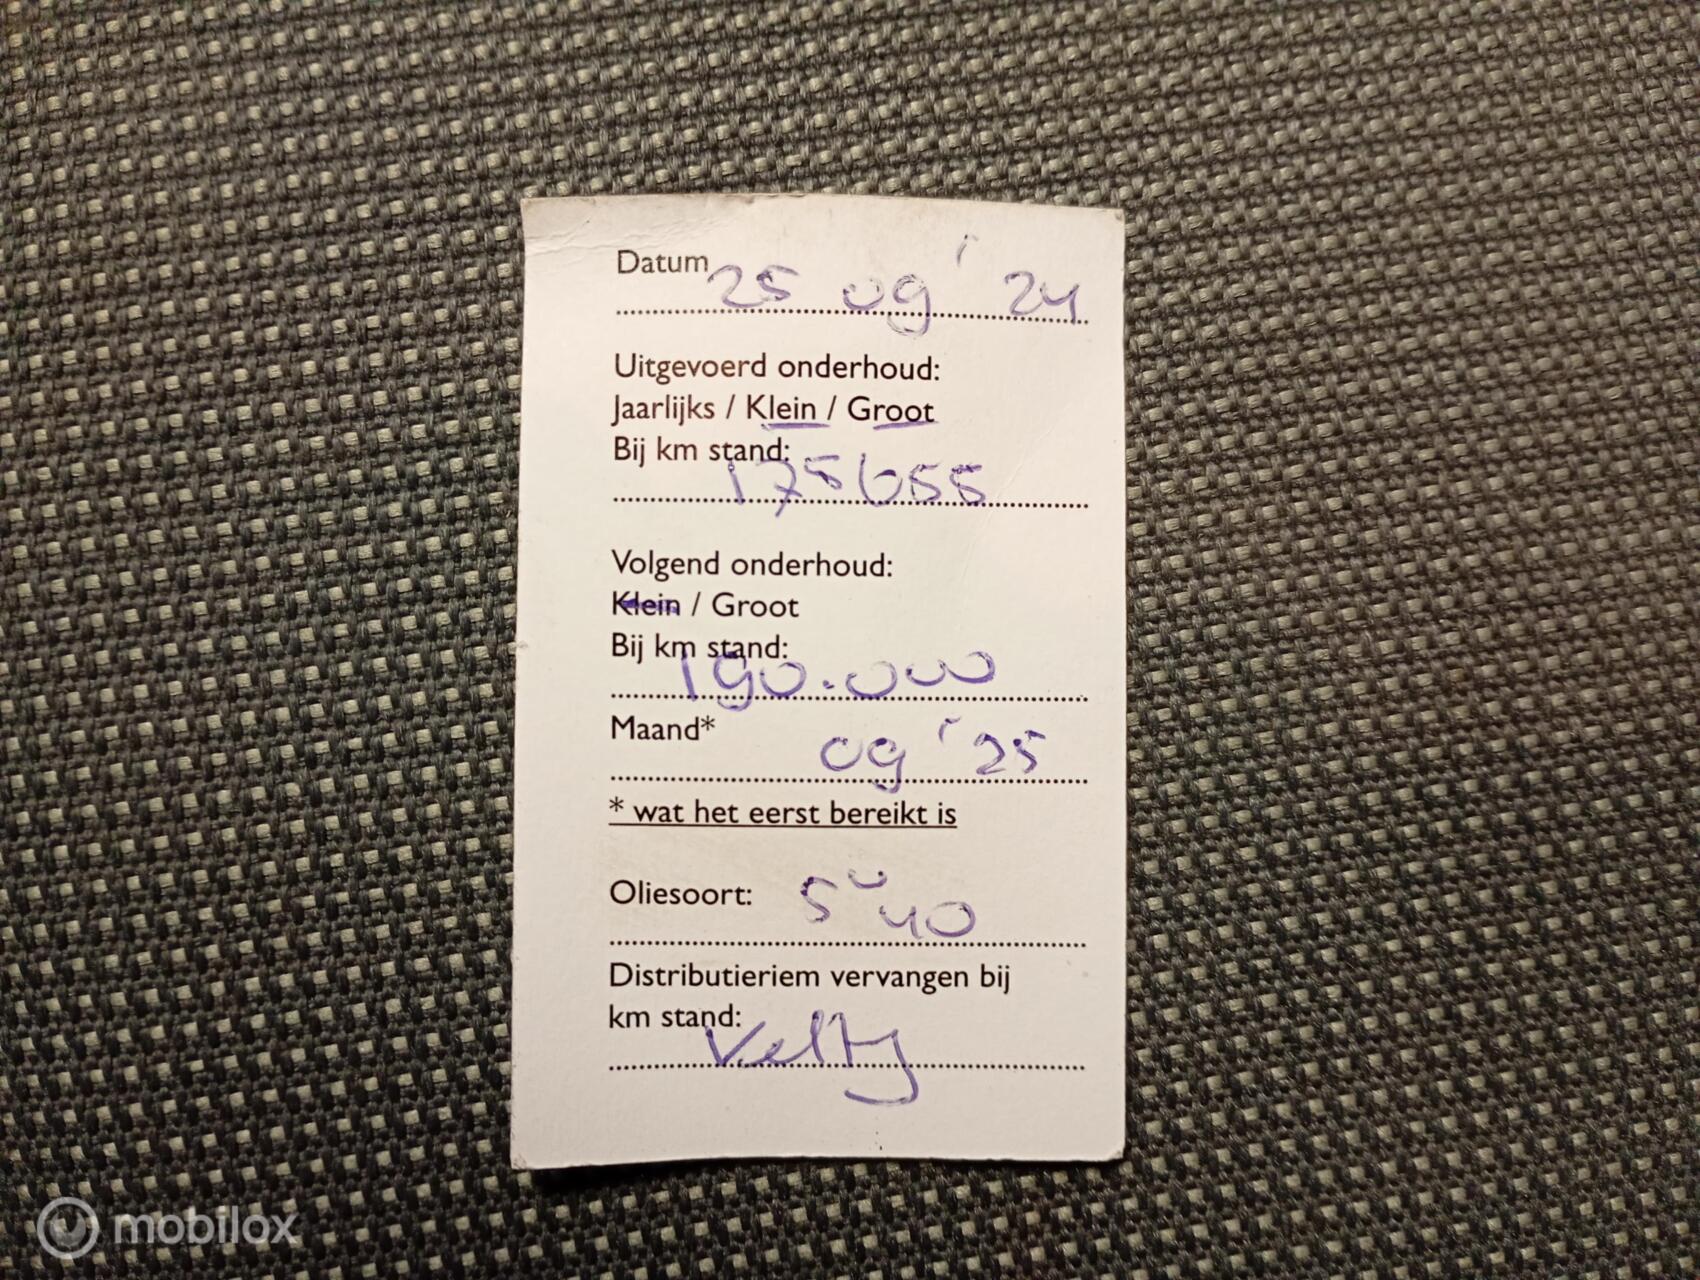 Datum
25 09 '24
Uitgevoerd onderhoud:
Jaarlijks / Klein / Groot
Bij km stand:
175655
Volgend onderhoud:
Klein / Groot
Bij km stand:
190.000
Maand*
09 '25
* wat het eerst bereikt is
Oliesoort:
5 40
Distributieriem vervangen bij
km stand:
mobilox